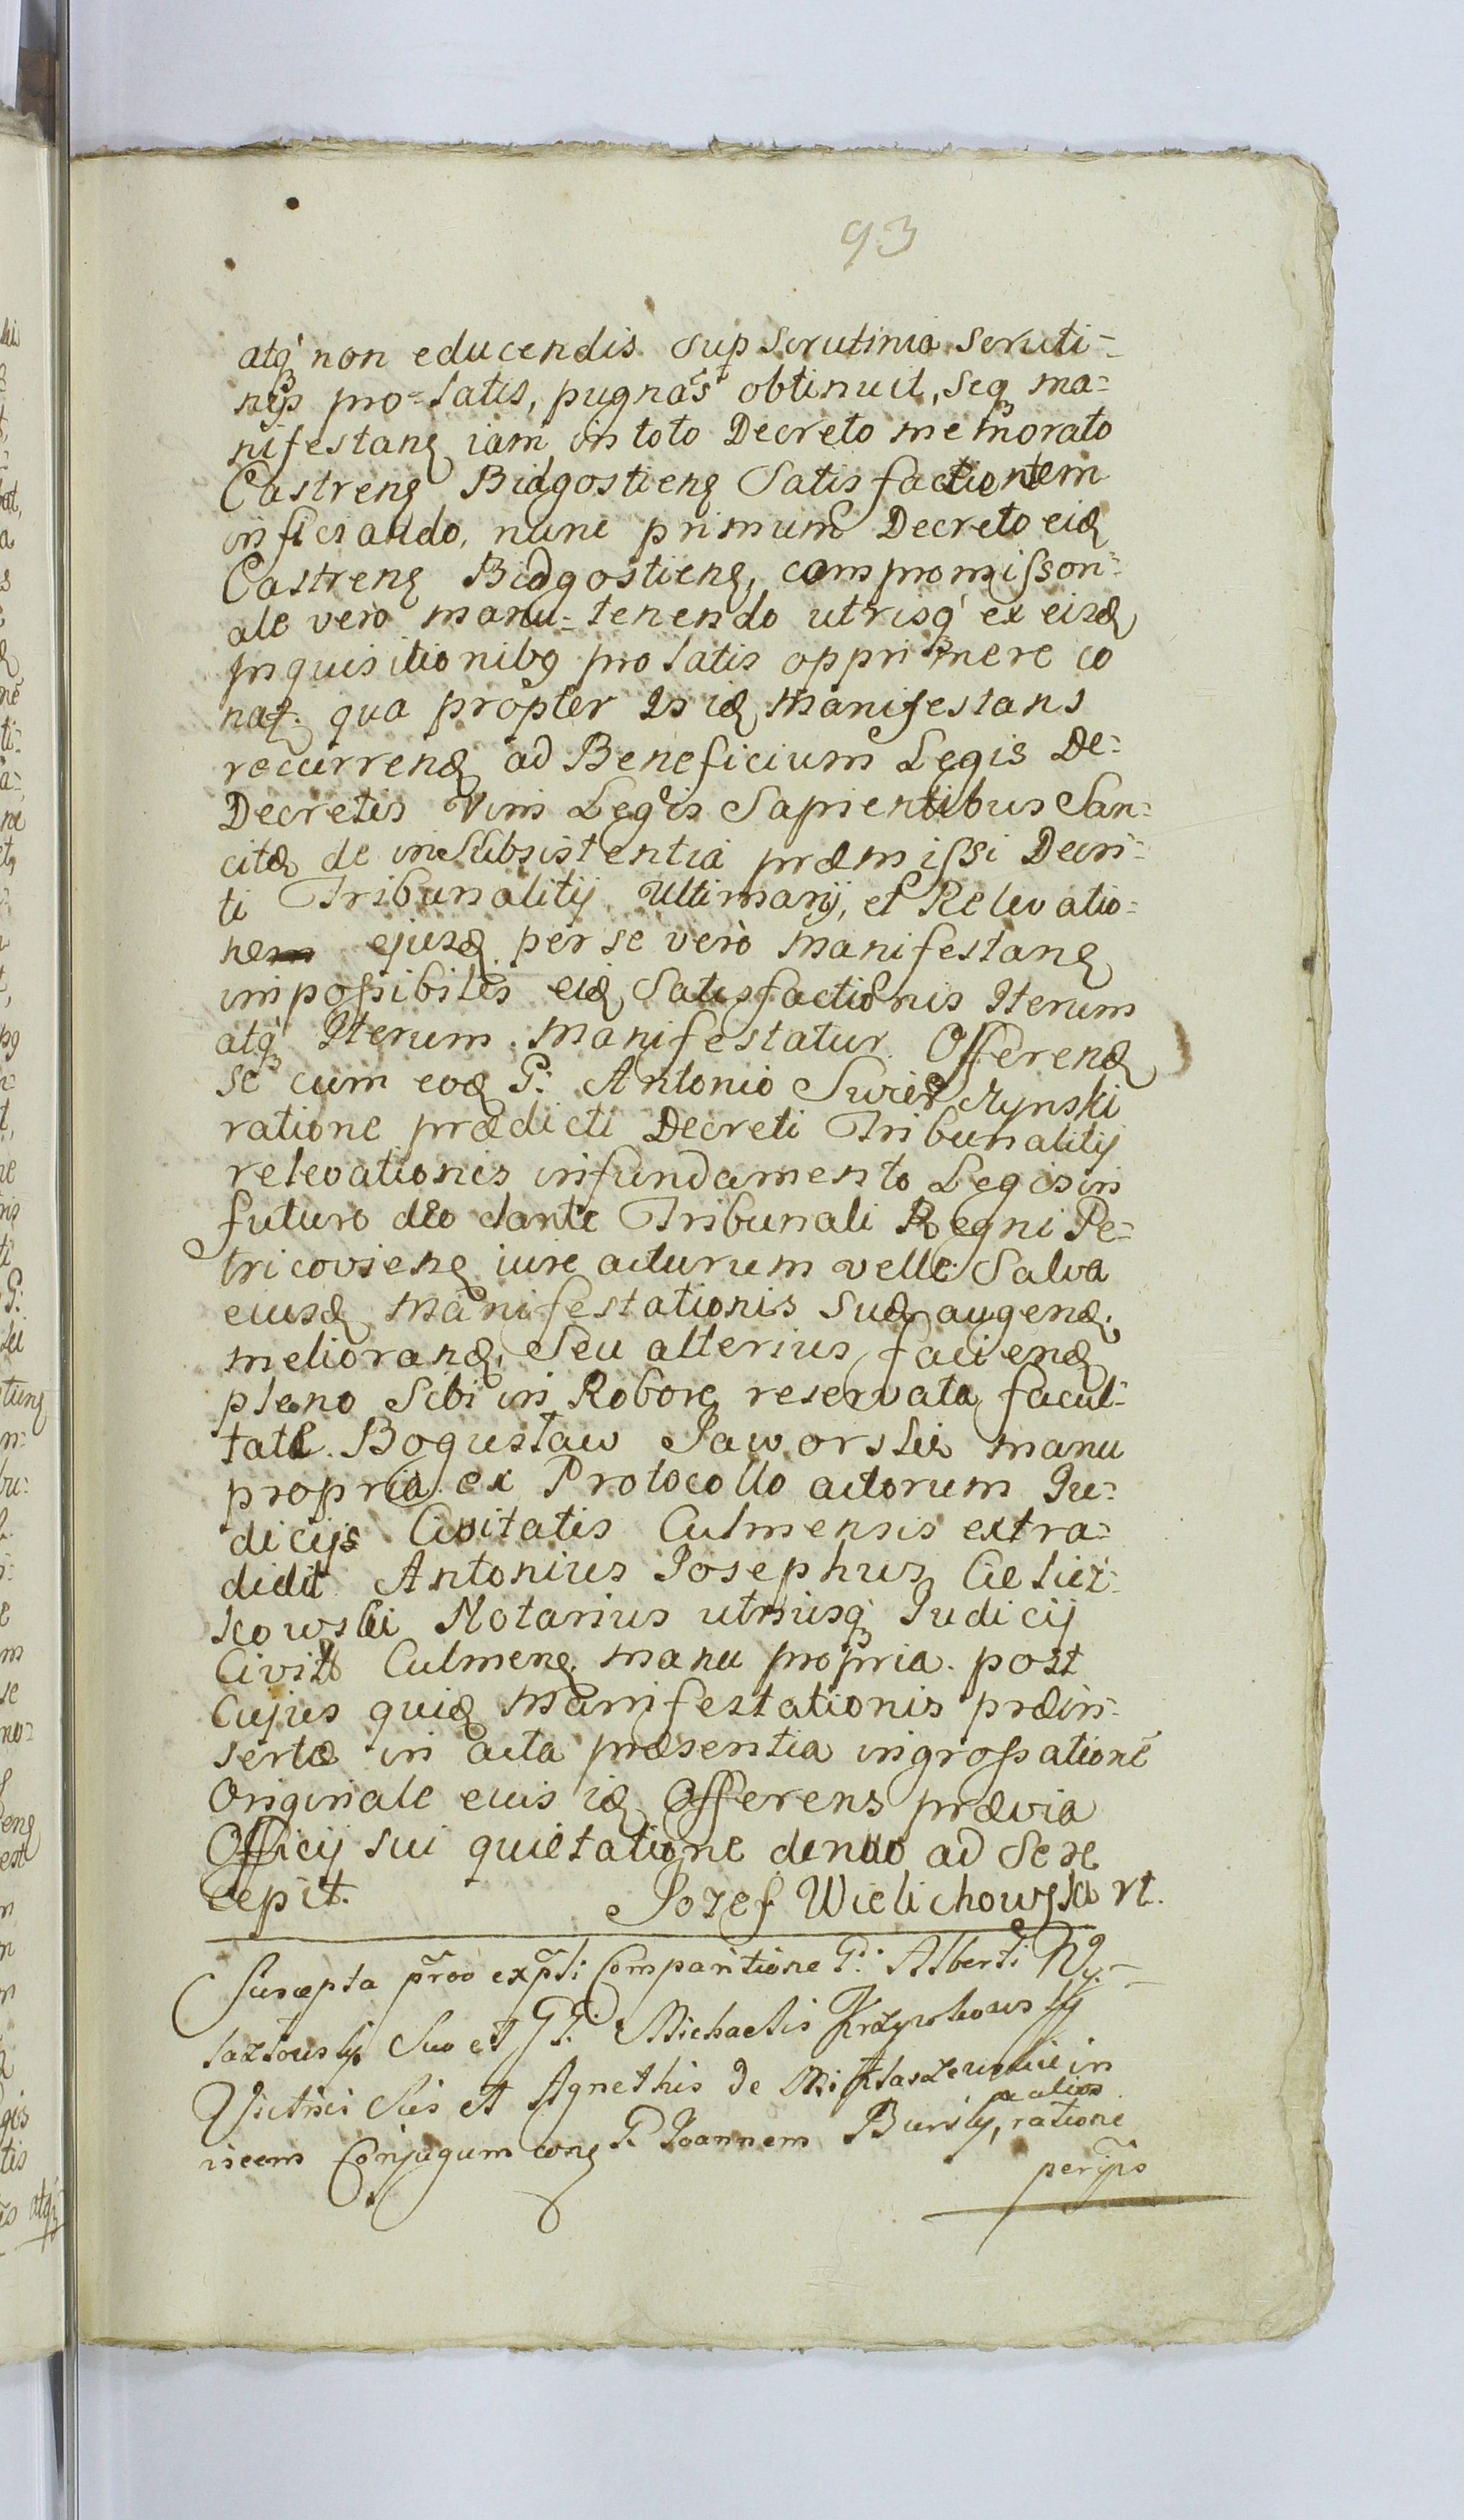 93
atq̓ non educendis sup scrutinia scruti-
nijs pro-latis, pugnãs obtinuit, seq ma-
nifestanꝫ iam in toto Decreto memorato
Castrenꝫ Bidgostienꝫ Satisfactionem
inficiando, nunc primum Decreto eidꝫ
Castrenꝫ Bidgostienꝫ, compromisson-
ale vero manu-tenendo utrisq̓ ex eisdꝫ
Inquisitionibꝫ prolatis opprimere co
natꝫ. qua propter Is idꝫ Manifestans
recurrendꝫ ad Beneficium Legis De-
Decretis Vim Legis Sapientibus San-
citæ de insubsistentia præmissi Decri-
ti Tribunalitij Ultimarij, et Relevatio-
ne ejusdꝫ per se verò manifestanꝫ
impossibiles eidꝫ Satisfactionis Iterum
atq̓ Iterum Manifestatur. Offerendꝫ
se cum eodꝫ G: Antonio Swierczynski
ratione prædicti Decreti Tribunalitij
relevationis in fundamento Legis in
futuro deo dante Tribunali Regni Pe-
tricovienꝫ iure acturum velle. Salva
eiusdꝫ Manifestationis suæ augendꝫ,
meliorandꝫ, Seu alterius faciendꝫ
pleno Sibi in Robore reservata facul-
tate. Bogustaw Jaworski manu
propria. ex Protocollo actorum Iu-
dicijs Civitatis Culmensis extra-
didit Antonius Josephus Cieliz-
kowski Notarius utriusq̓ Judicij
Civitt Culmenꝫ manu propria. post
Cujus quidꝫ Manifestationis præin-
sertæ in acta præsentia ingrossationẽ
Originale eius idꝫ Offerens prævia
Officij sui quietatione denuo ad Se re
cepit. Jozef Wielichowski rt.
Suscepta prõo exp̃li Comparitione G: Alberti Wy-
lazlowsky Suo et GG: Michaelis Krzywkowsky
Victrici Sui et Agnethis de Miklaszewskie in
vicem Conjugum conꝫ G. Joannem Bursky, ratione
a alios
per ip̃s